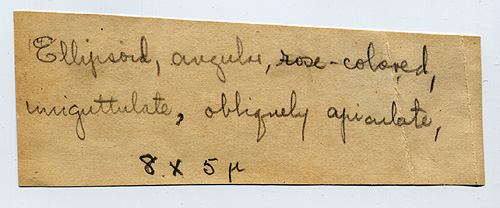 Ellipsoid, angular, rose-colored,
uniguttulate, obliquely apiculate,
8 x 5 µ